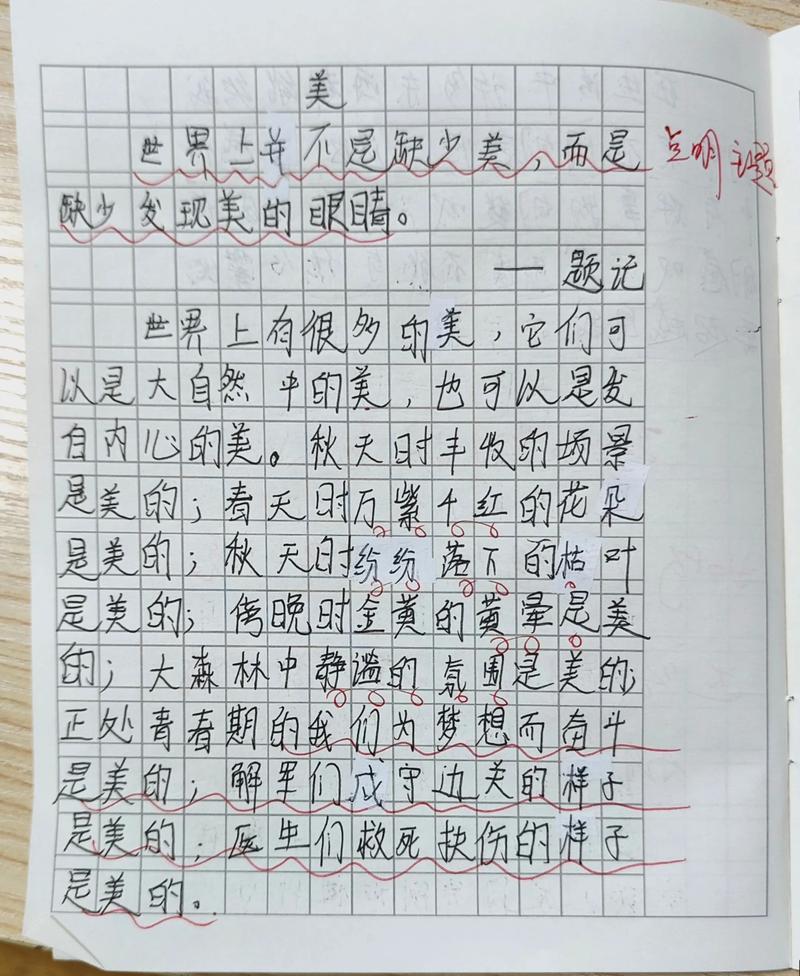 美
世界上并不是缺少美，而是
点明主题
缺少发现美的眼睛。
——题记
世界上有很多的美，它们可
以是大自然中的美，也可以是发
自内心的美。秋天时丰收的场景
是美的；春天时万紫千红的花朵
是美的；秋天时纷纷落下的枯叶
是美的；傍晚时金黄的黄晕是美
的；大森林中静谧的氛围是美的；
正处青春期的我们为梦想而奋斗
是美的；解里们戍守边关的样子
是美的；医生们救死扶伤的样子
是美的。